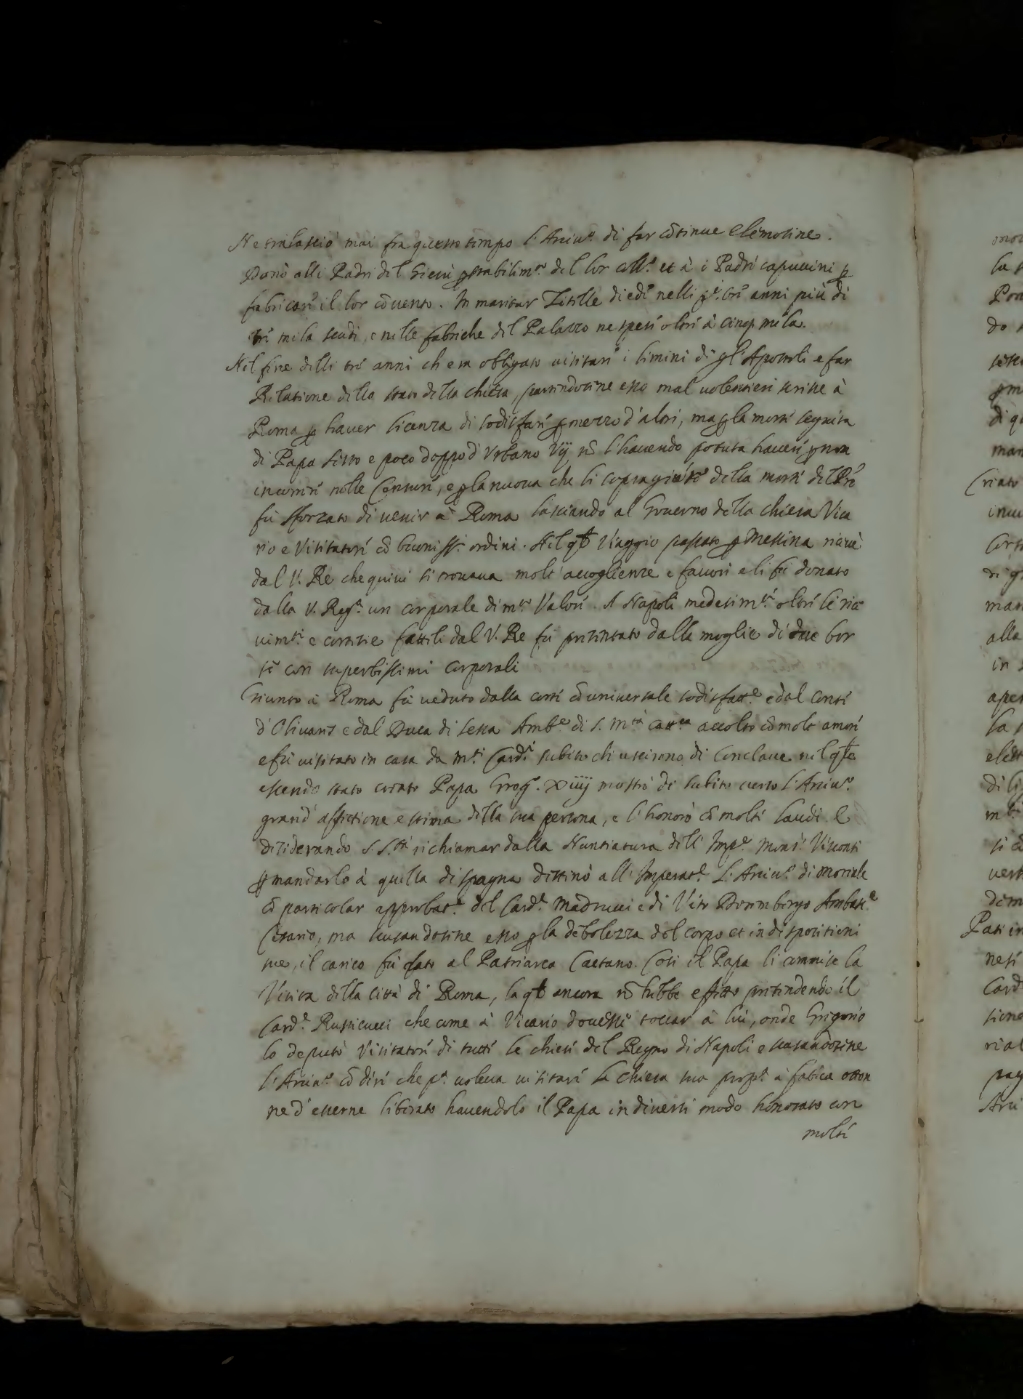 Ne tralasciò mai fra questo tempo l'Arciu.º di far cōtinue elemosine.
Donò alli Padri del Giesù p stabilim.to del lor coll.º et à i Padri capuccini p
fabricar il lor cōuento. In maritar Zitelle diede nelli p.i tre anni più di
tre mila scudi, e nelle fabriche del Palazzo ne spese oltre à cinq mila.
Nel fine delli tre anni ch'era obligato uisitare i limini di gl'Apostoli e far
Relatione dello stato della chiesa, parendosine esso mal uolentieri scrisse à
Roma p hauer licenza di sodisfare p mezzo d'altri, ma p la morte seguita
di Papa Sisto e poco doppo d'Vrbano Vij, nō l'hauendo potuta hauere p non
incorrere nelle Censure, e p la nuoua che li sopragiūse della morte del Pre
fù sforzato di uenir à Roma lasciando al Gouerno della chiesa Vica
rio e Visitatori cō buoniss.i ordini. Nel qł Viaggio passato p Messina riceuè
dal V. Re che quiui si trouaua molte accoglienze e fauori e li fù donato
dalla V. Reg.a un corporale di m.to Valore. A Napoli medesim.te oltre li rice
uim.ti e cortesie fattile dal V. Re fù presentato dalla moglie di due bor
se con superbissimi corporali
Giunto à Roma fù ueduto dalla corte cō uniuersale sodisfatt.e e dal Conte
d'Oliuares e dal Duca di Sessa Amb.ri di S. M.tà Catt.ca accolto cō molto amore
e fù uisitato in casa da m.ti Card.i subito ch'uscirono di Conclaue nel qłe
essendo stato creato Papa Greg.º xiiij mostrò di subito uerso l'Arciu.º
grand'affettione e stima della sua persona, e l'honorò cō molte laudi e
desiderando S. S.tà richiamar dalla Nuntiatura dell'Imp.re Mons.r Visconti
p mandarlo à quella di spagna destinò all'Imperat.e l'Arciu.º di Monreale
cō particolar approbat.e del Card.l Madrucci e di Vito Dornmbergo Ambasc.e
Cesareo, ma scusandosine esso p la debolezza del corpo et indispositioni
sue, il carico fù dato al Patriarca Caetano. Così il Papa li commise la
Visita della Città di Roma, la qł ancora nō hebbe effetto pretendendo il
Card.l Rusticucci che come à Vicario douesse toccar à lui, onde Gregorio
lo deputò Visitatore di tutte le chiese del Regno di Napoli e scusandosine
l'Arciu.º cō dire che p.a uoleua uisitare la chiesa sua prop.a à fatica otten
ne d'esserne liberato hauendolo il Papa in diuersi modo honorato con
molte